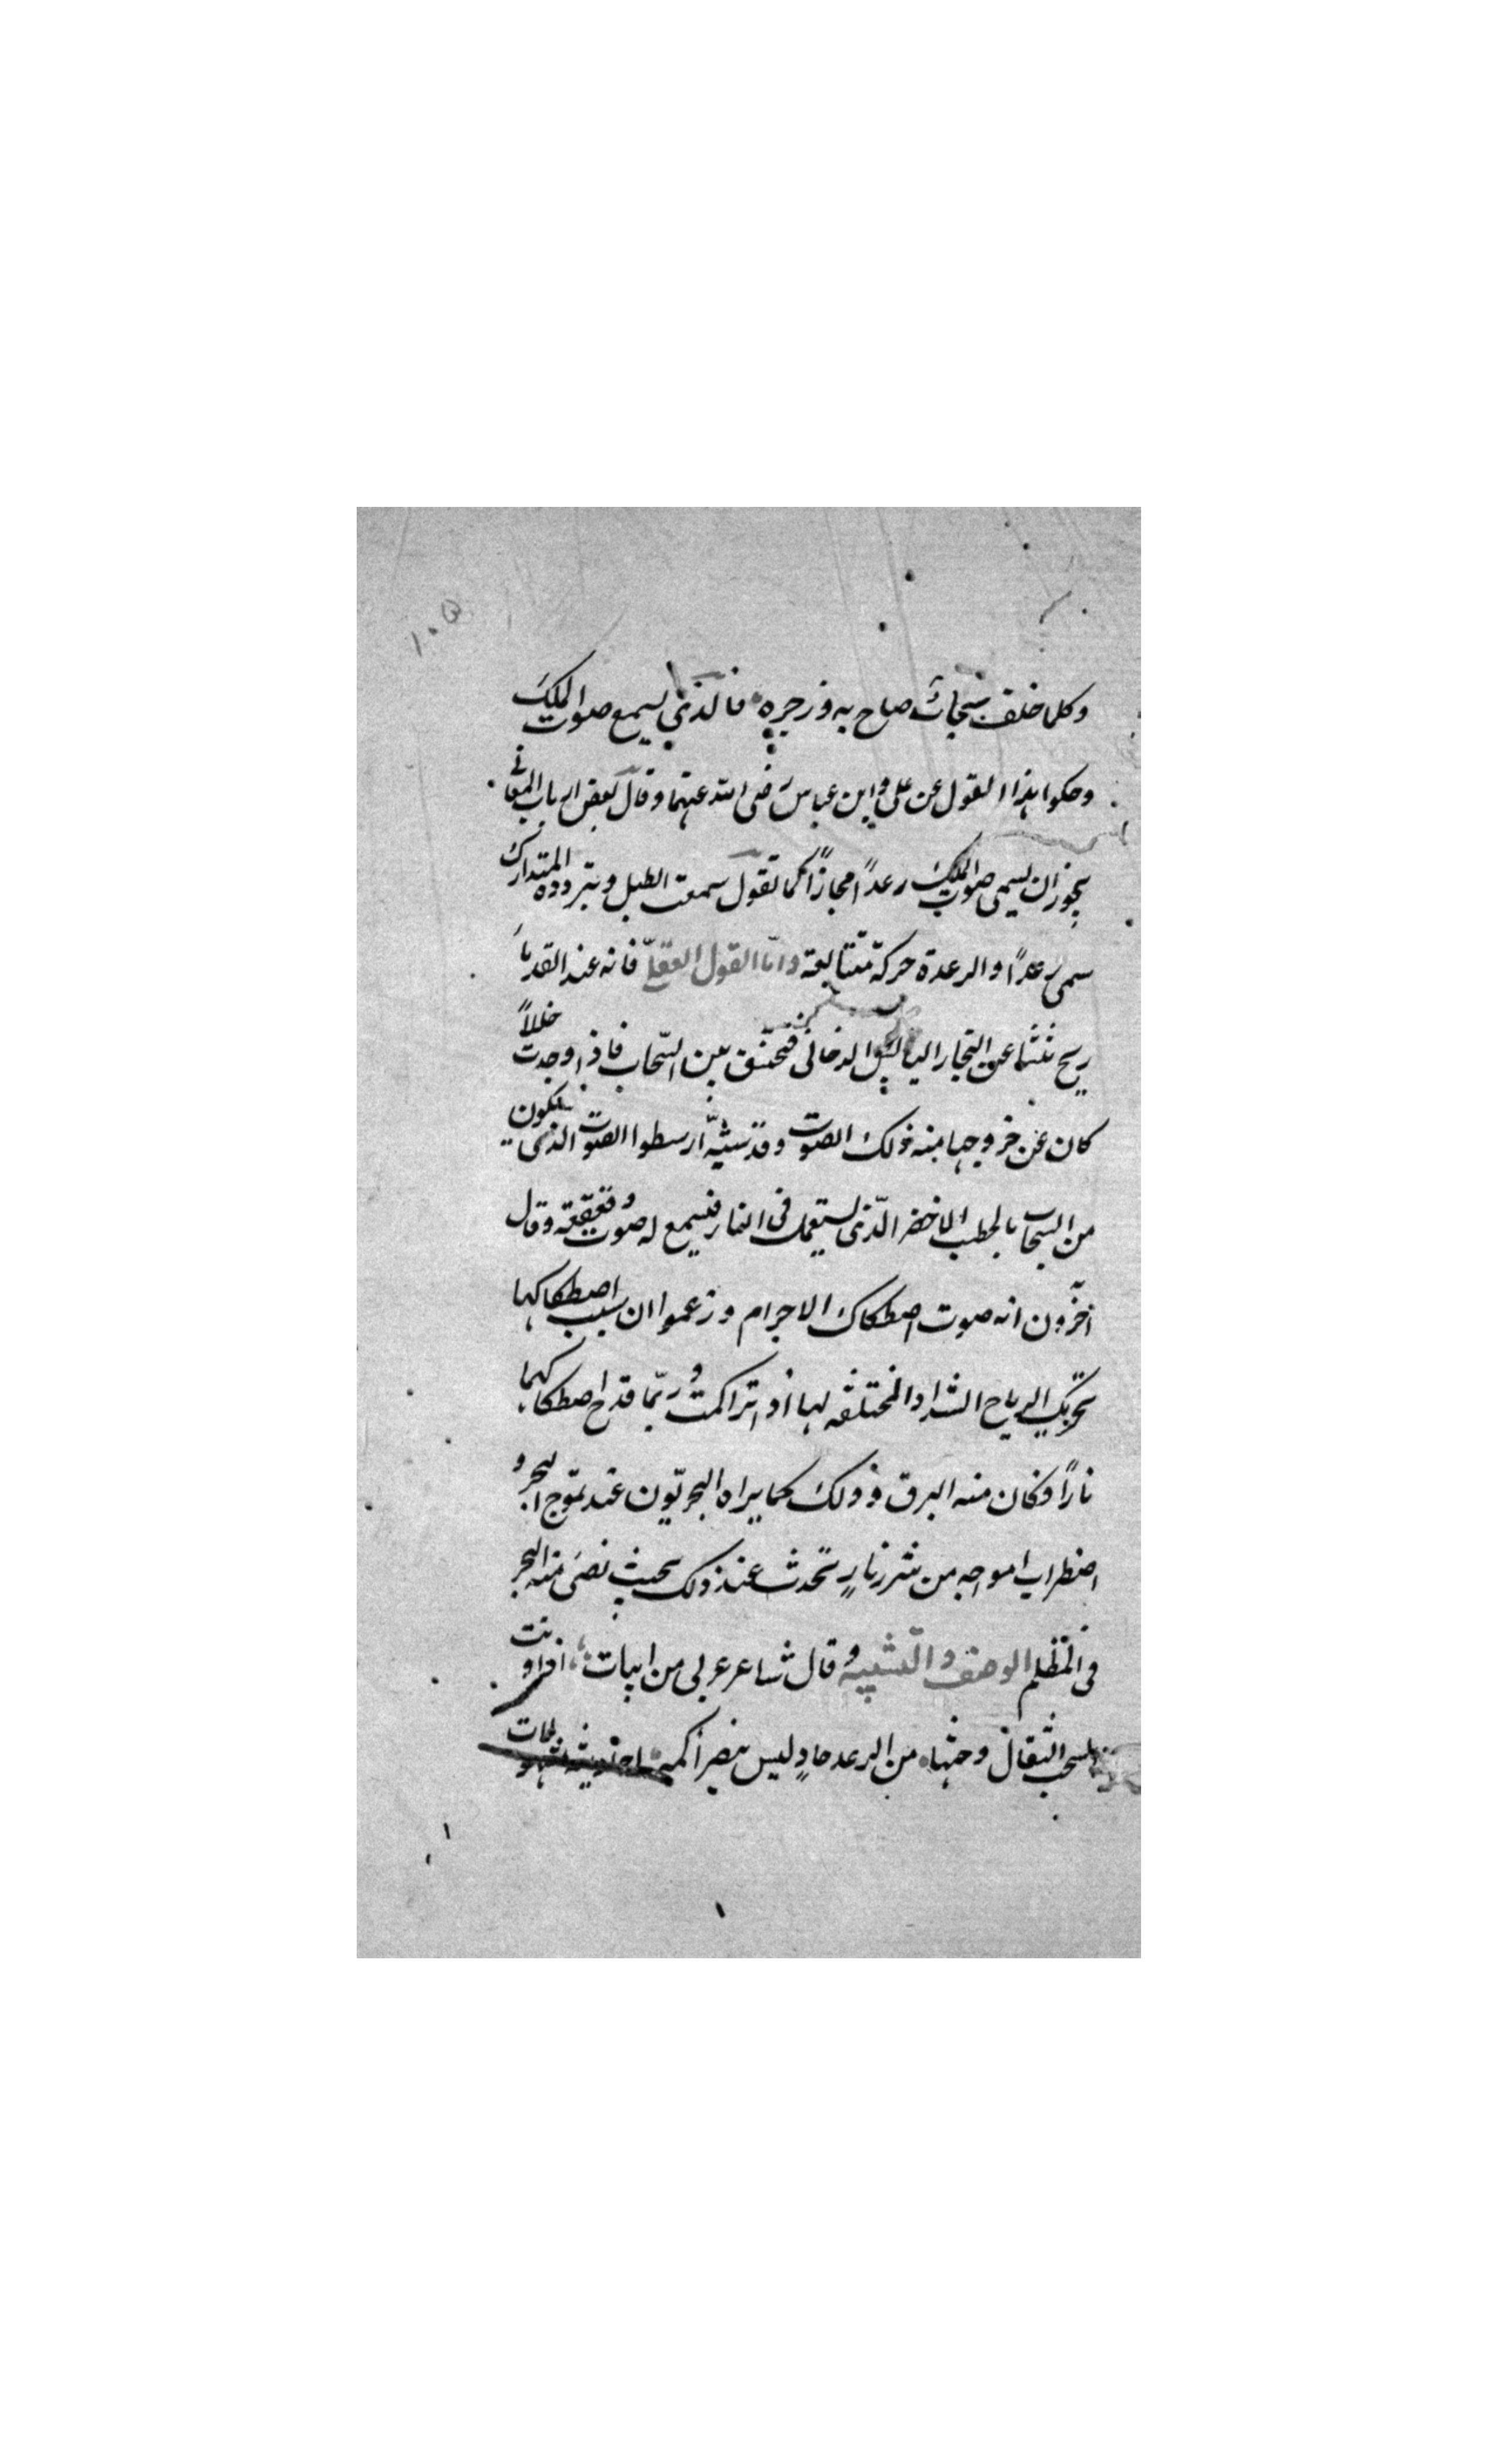 ١٠٥
وكلما خلف سحابٌ صاح به وزجره فالذي يسمع صوت الملك
وحكوا هذا القول عن علي وابن عباس رضى الله عنهما وقال بعض ارباب المعاني
يجوز ان يسمى صوت الملك رعداً مجازاً كما تقول سمعت الطبل وبتردده المتدارك
سمى رعداً والرعدة حركة متتابعة وامّا القول العقلّي فانه عند القدماء
ريح تنشاء عن البخار اليابس الدخانى فتختنق بين السّحاب فاذا وجدت خللاً
كان عن خروجها منه ذلك الصوت وقد شبّه ارسطوا الصوت الذى يكون
من السحاب بالحطب الاخضر الّذى يستعمل فى النار فيسمع له صوت وقعقعة وقال
آخرون انه صوت اصطكاك الاجرام وزعموا ان سبب اصطكاكها
تحريك الرياح الشداد المختلفه لها اذا تراكمت وربّما قدح اصطكاكها
ناراً فكان منه البرق وذلك كما يراه البحريّون عند تموّج البحر و
اضطراب امواجه من شرر نارٍ تحدث عند ذلك بحيث يضىء منه البحر
فى الظلم الوصف والتشبيه وقال شاعر عربي من ابيات
السحب الثقال وحثها من الرعد حادٍ ليس يبصر أكمه